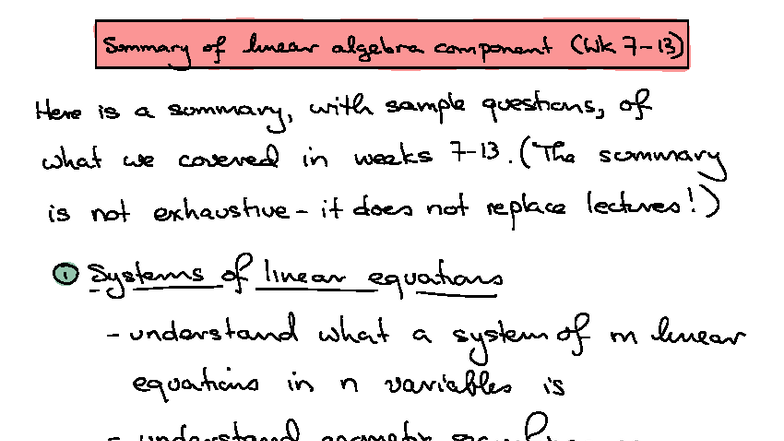 Summary of linear algebra component (Wk 7-13)
Here is a summary, with sample questions, of
what we covered in weeks 7-13. (The summary
is not exhaustive - it does not replace lectures!)
① Systems of linear equations
- understand what a system of m linear
equations in n variables is
- understand geometric